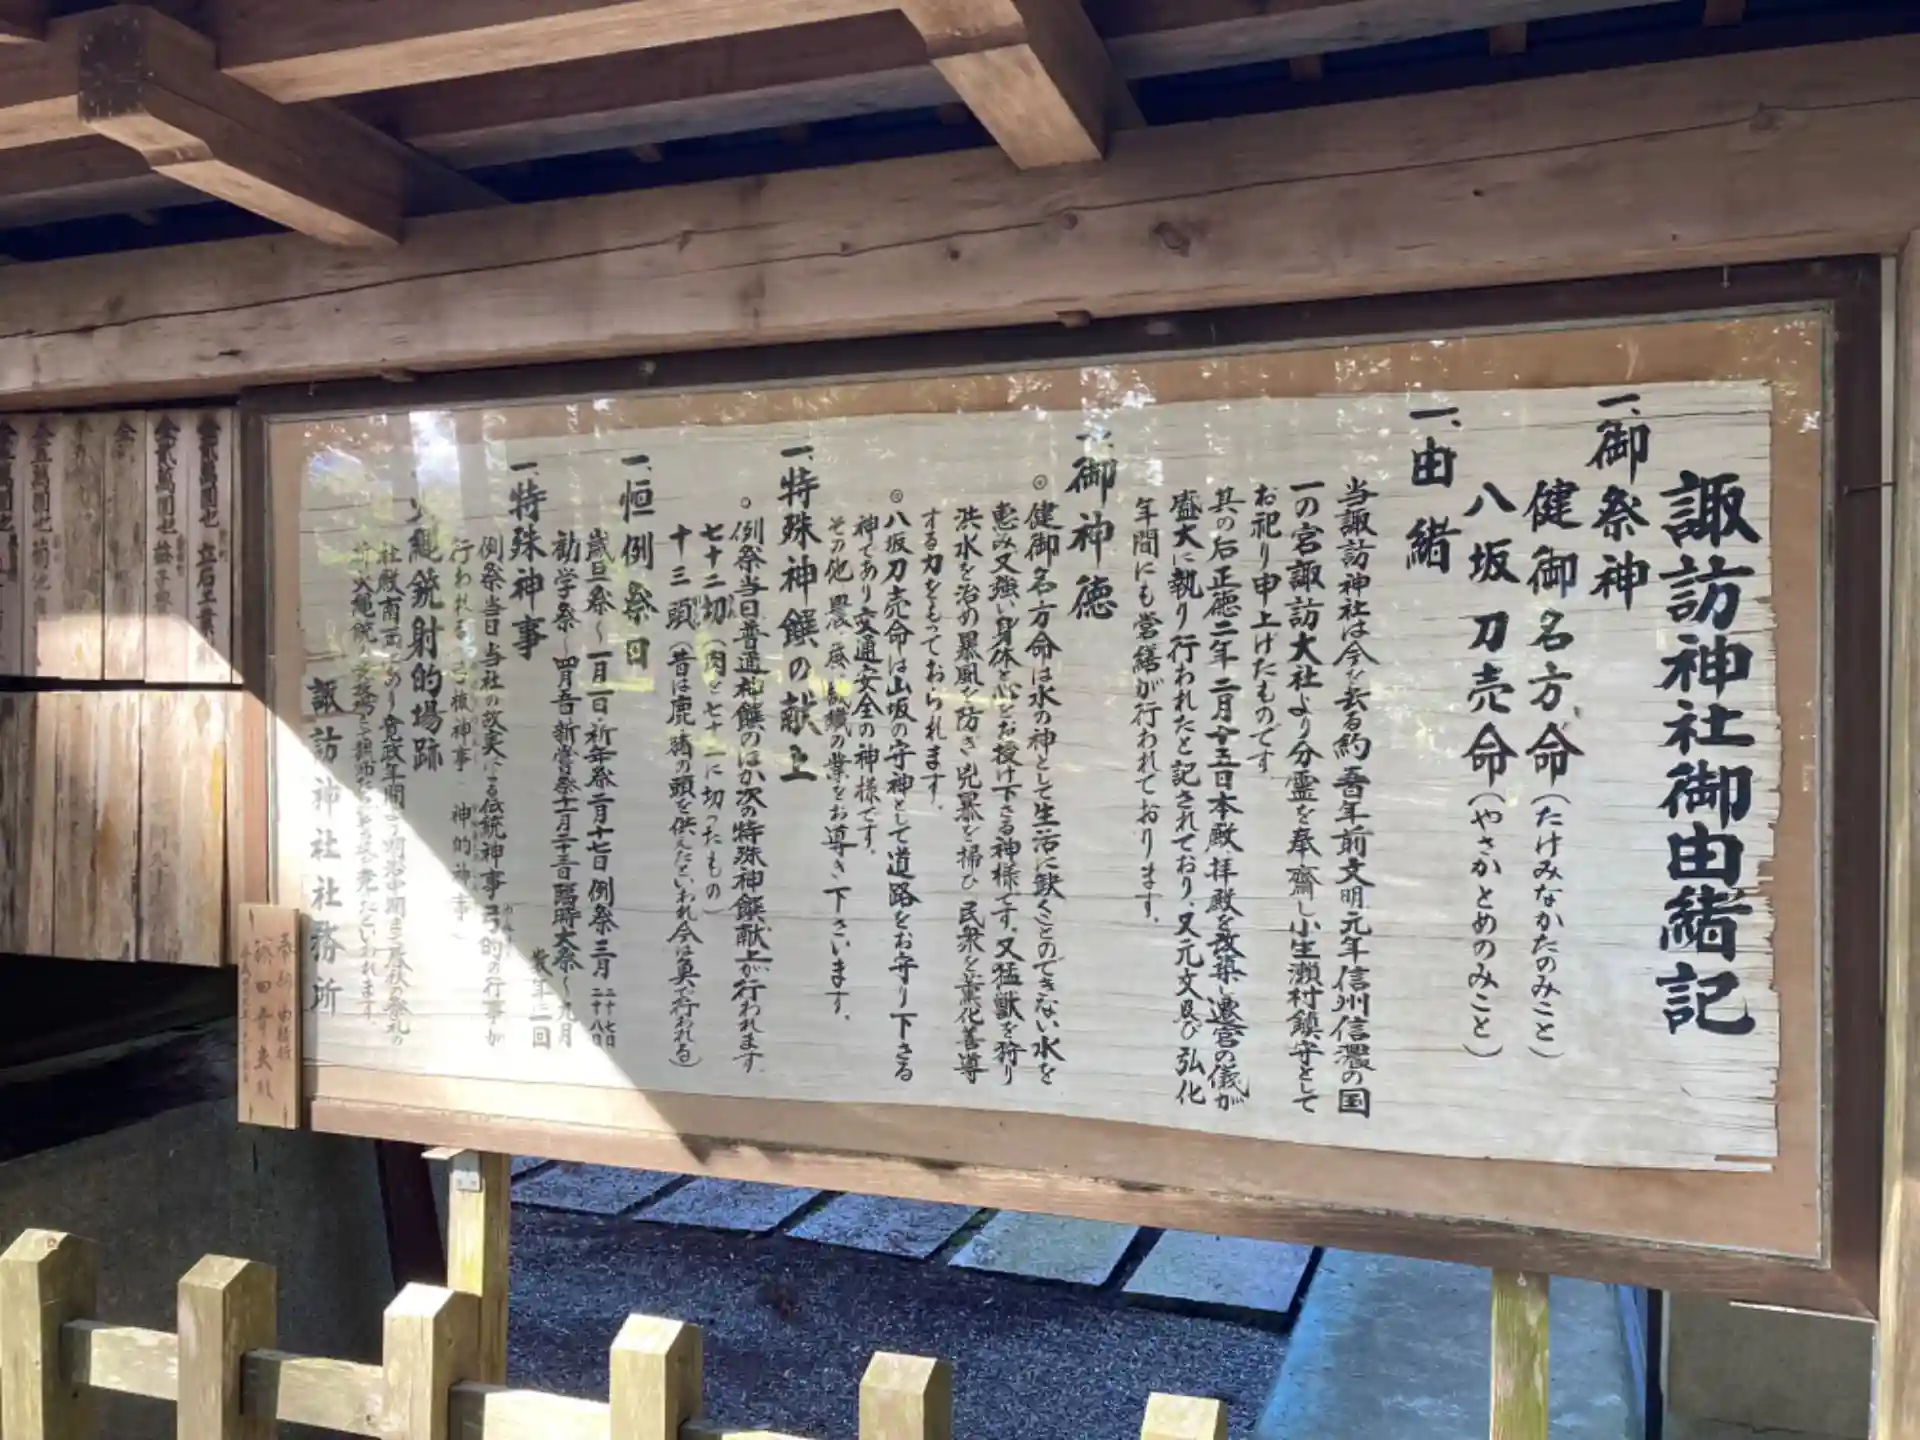 諏訪神社御由緒記
一、御祭神
健御名方命(たけみなかたのみこと)
八坂刀売命(やさかとめのみこと)
一、由緒
当諏訪神社は今を去る約五百年前文明元年信州信濃の国
一の宮諏訪大社より分霊を奉齋し小生瀬村鎮守として
お祀り申上げたものです
其の后正徳二年二月十五日本殿拝殿を改築遷宮の儀が
盛大に執り行われたと記されており、又元文及び弘化
年間にも営繕が行われております。
一、御神徳
◎健御名方命は水の神として生活に欠くことのできない水を
恵み又強い身体と心とお授け下さる神様です。又猛獣を狩り
洪水を治め暴風を防ぎ兇暴を掃ひ民衆を薫化善導
する力をもっておられます。
◎八坂刀売命は山坂の守神として道路をお守り下さる
神であり交通安全の神様です。
その他農、機織の業をお導き下さいます。
一、特殊神饌の献上
○例祭当日普通神饌のほか次の特殊神饌献上が行われます
七十二切(肉を七十二に切ったもの)
十三頭(昔は鹿、猪の頭を供えたといわれ今は魚で行われる)
一、恒例祭日
歳旦祭〜一月一日・祈年祭二月十七日例祭三月二十七日二十八日
勧学祭〜四月 新嘗祭十一月二十三日臨時大祭〜九月
一、特殊神事
例祭当日当社の故実による伝統神事弓的の行事が
行われる
縄銃射的場跡
社殿南面にあり寛政年間より明治中期まで春秋の祭礼の
諏訪神社社務所